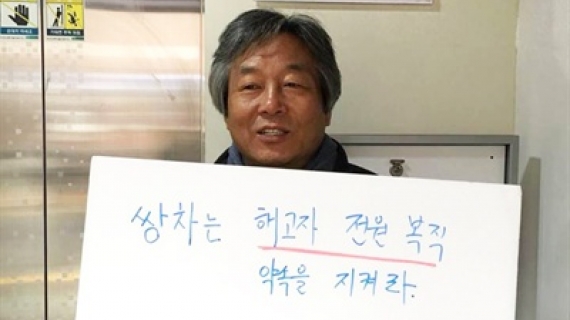 쌍차는 해고자 전원 복직
약속을 지켜라.